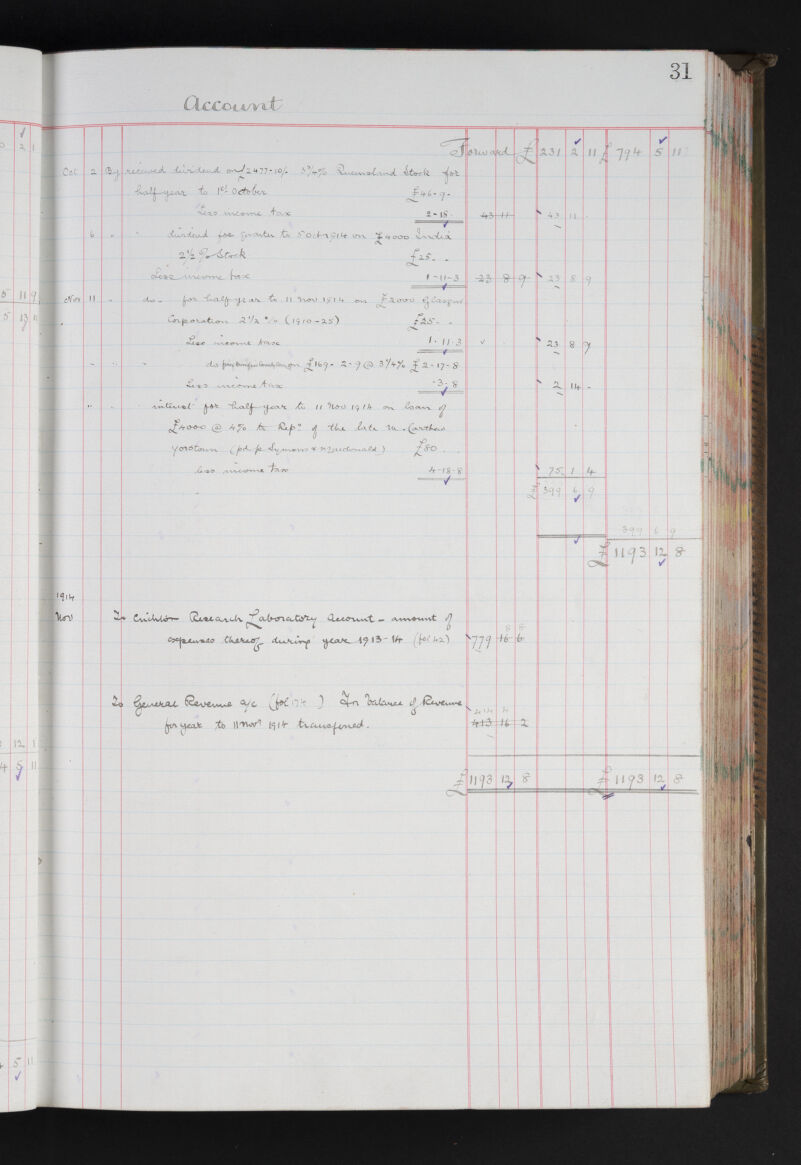 31
Account
Forward £ 231 2 11 £ 794 5 11
Oct 2 By received dividend on £2477-10/- 3¾% Queensland Stock for
half-year to 1st October £46-9-
Less income tax 2-18- 43 11 43 11 -
6 " " dividend for quarter to 5 Oct 1914 on £4000 India
2½% Stock £25- -
Less income tax 1-11-3 23 8 9 23 8 9
Nov 11 " do - for half-year to 11 Nov 1914 on £2000 Glasgow
Corporation 2½% (1910-25) £25- -
Less income tax 1-11-3 23 8 9
" " " do on £169-2-9 @ 3¼% £2-17-8
Less income tax -3-8 2 14 -
" " interest for half year to 11 Nov 1914 on loan of
£4000 @ 4% to Reps of the late
(pd. p. Symons & Macdonald) £80 - -
less income tax 4-18-8 75 1 4
£399 6 9
399 6 9
£1193 12 8
1914
Nov To Crichton Research Laboratory Account - amount of
expenses thereof during year 1913-14 (fol 42) 779 16 6
8 8
To General Revenue a/c (fol 174) For balance of Revenue
for year to 11 Novr 1914 transferred. 413 16 2
414 4
£1193 12 8 £1193 12 8